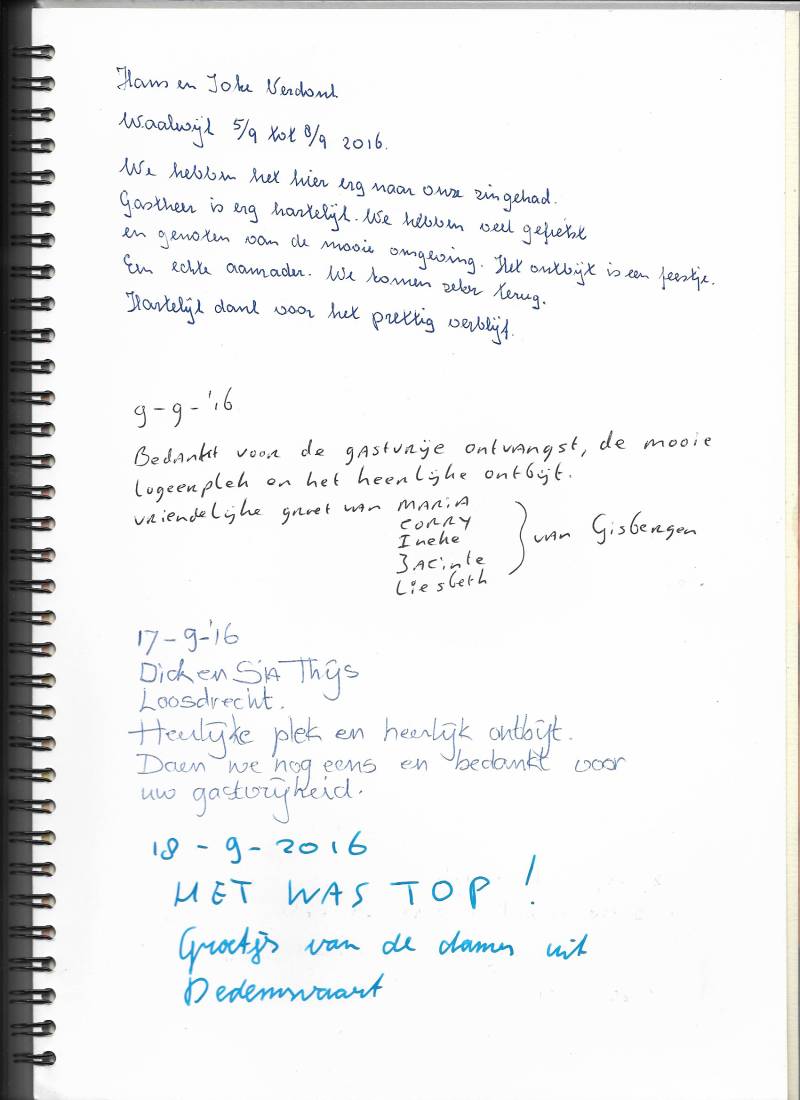 Hans en Joke Verdonk
Waalwijk 5/9 tot 8/9 2016.
We hebben het hier erg naar onze zin gehad.
Gastheer is erg hartelijk. We hebben veel gefietst
en genoten van de mooie omgeving. Het ontbijt is een feestje.
Een echte aanrader. We komen zeker terug.
Hartelijk dank voor het prettig verblijf.
9-9-'16
Bedankt voor de gastvrije ontvangst, de mooie
logeerplek en het heerlijke ontbijt.
vriendelijke groet van MARIA
CORRY
Ineke
Jacinte
Liesbeth
van Gisbergen
17-9-'16
Dick en Sia Thijs
Loosdrecht.
Heerlijke plek en heerlijk ontbijt.
Doen we nog eens en bedankt voor
uw gastvrijheid.
18-9-2016
HET WAS TOP!
Groetjs van de dames uit
Dedemsvaart